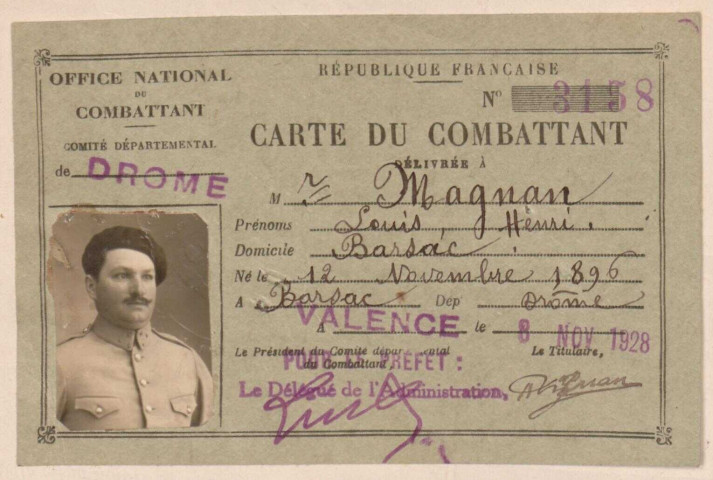 OFFICE NATIONAL
DU
COMBATTANT
COMITÉ DÉPARTEMENTAL
de DROME
RÉPUBLIQUE FRANÇAISE
Nº 3158
CARTE DU COMBATTANT
DÉLIVRÉE À
M r Magnan
Prénoms Louis, Henri.
Domicile Barsac
Né le 12 Novembre 1896
A Barsac Dép Drôme
A VALENCE le 8 NOV 1928
Le Président du Comité départemental
du Combattant,
Le Titulaire,
POUR LE PRÉFET :
Le Délégué de l'Administration,